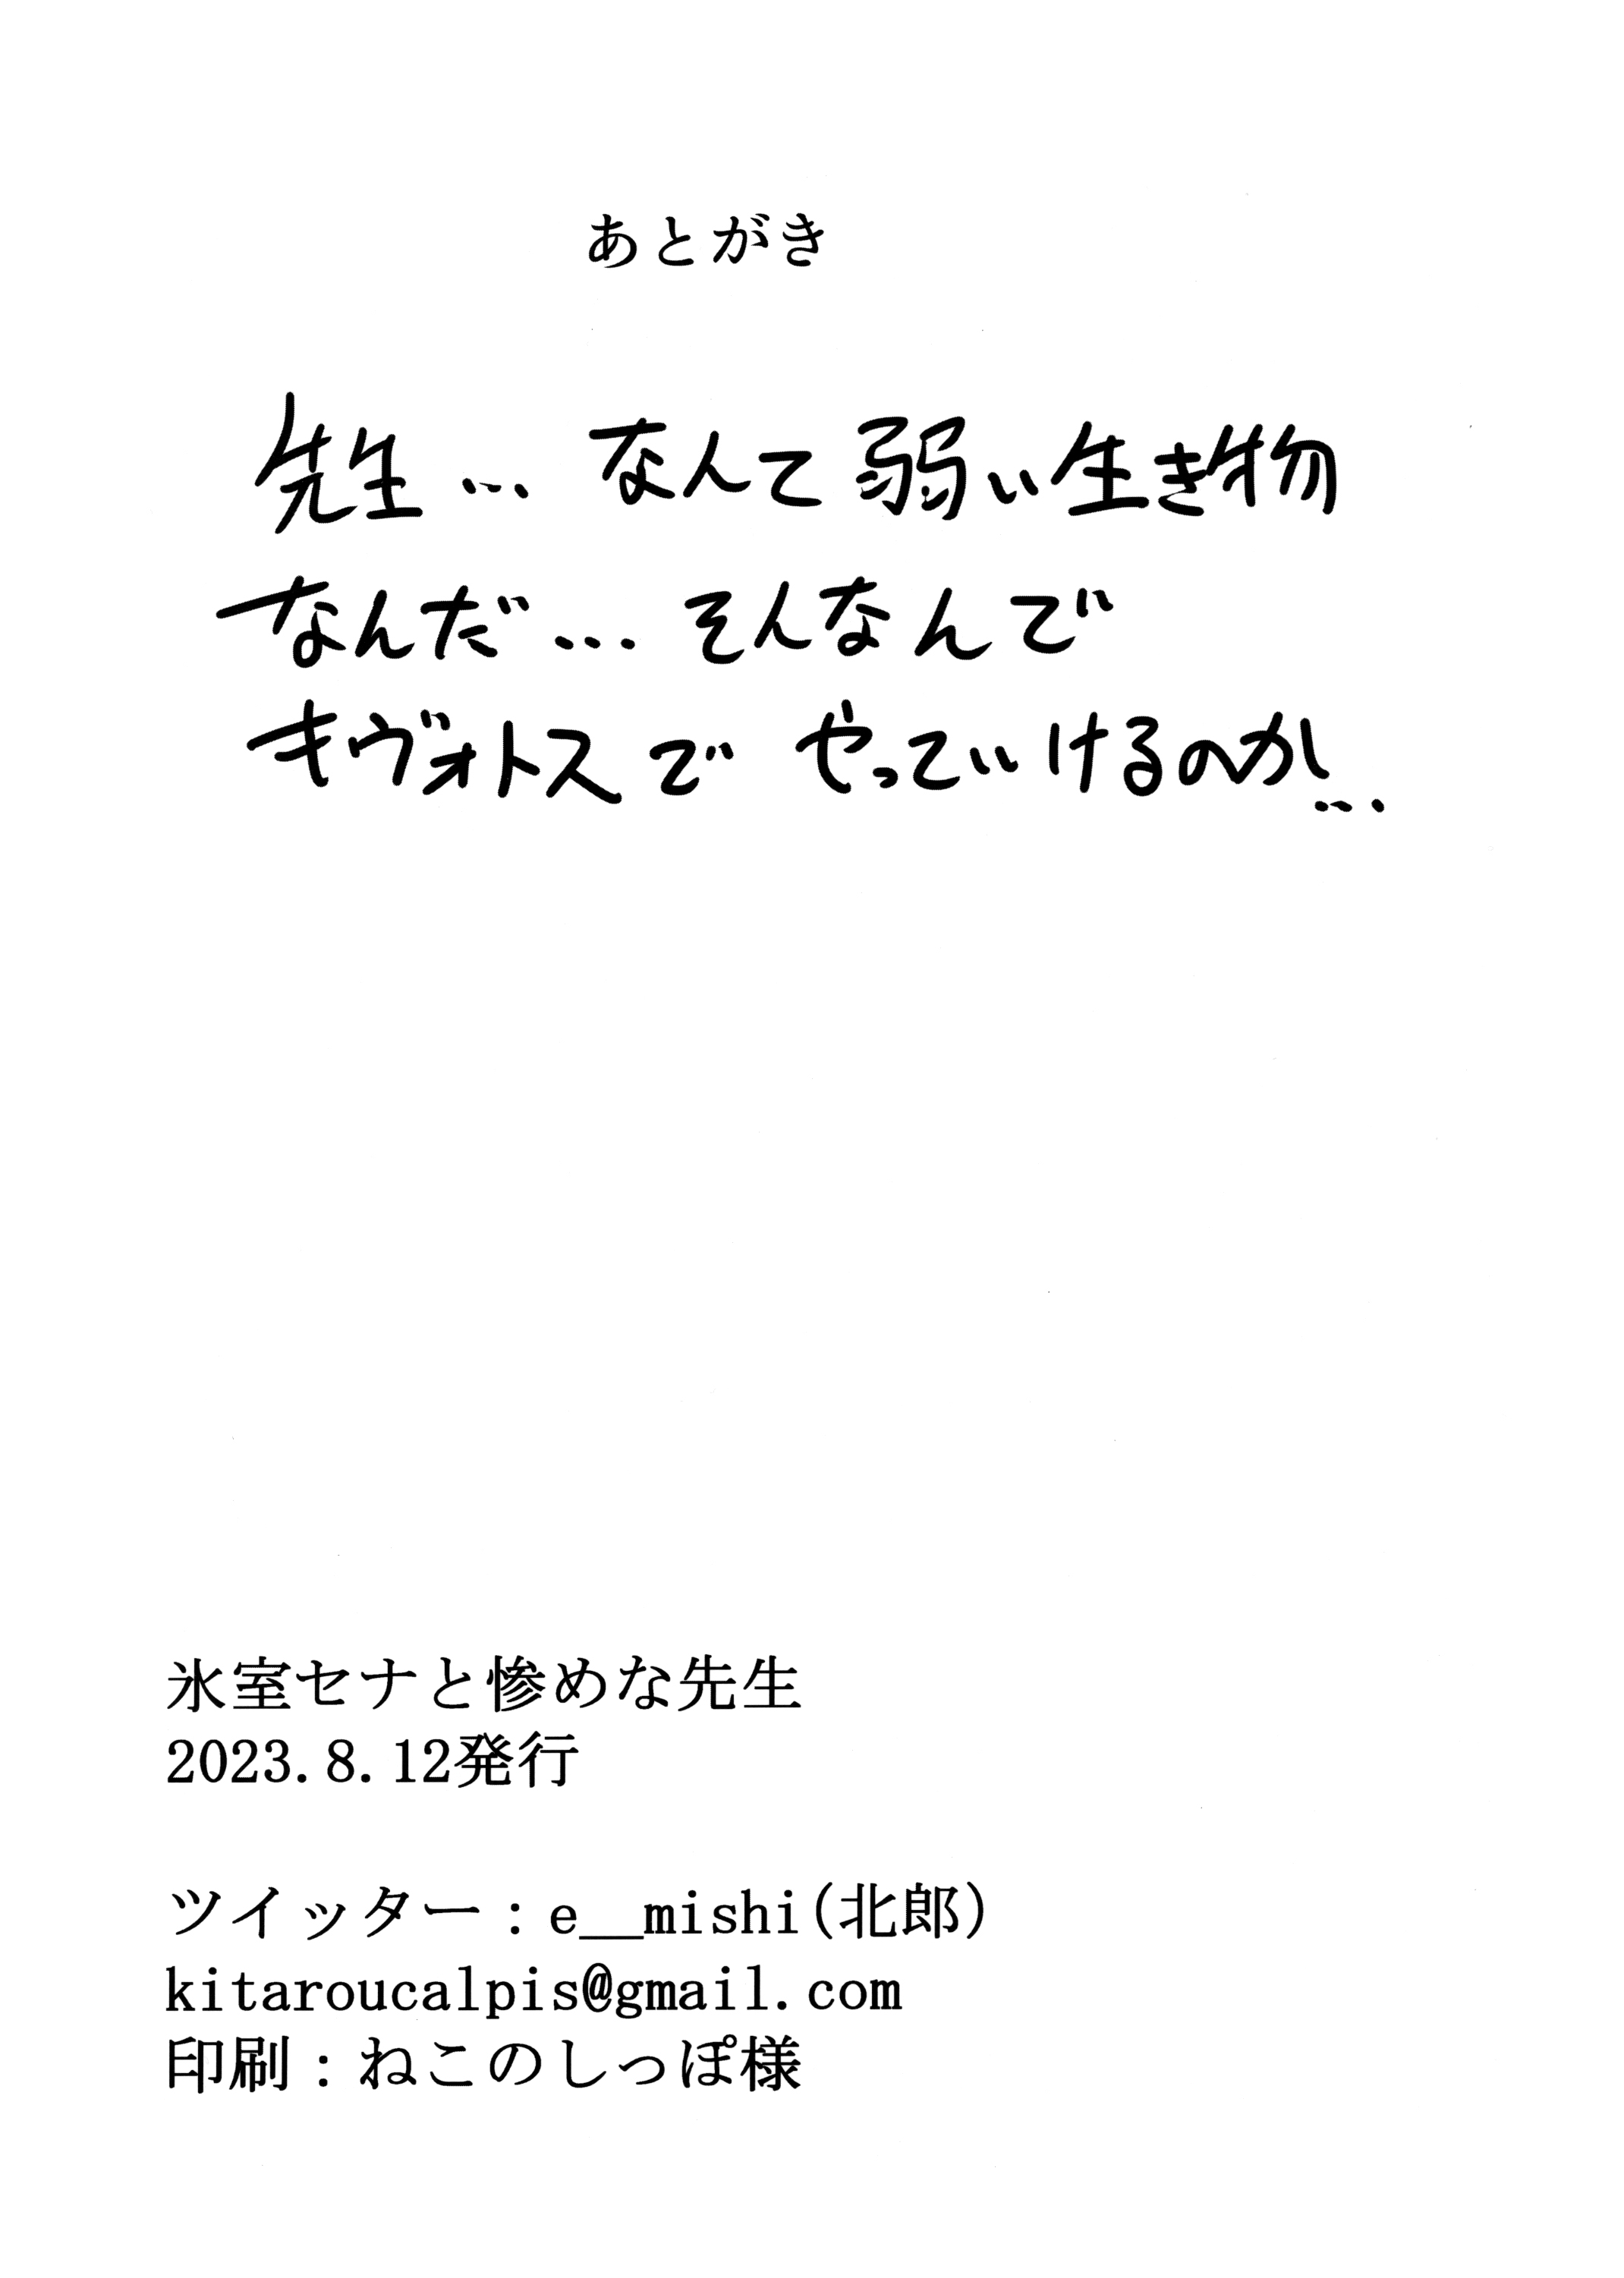 あとがき
先生… なんて弱い生き物
なんだ… そんなんで
キヴォトスで やっていけるのか…
氷室セナと惨めな先生
2023.8.12発行
ツイッター：e__mishi(北郎)
kitaroucalpis@gmail.com
印刷：ねこのしっぽ様